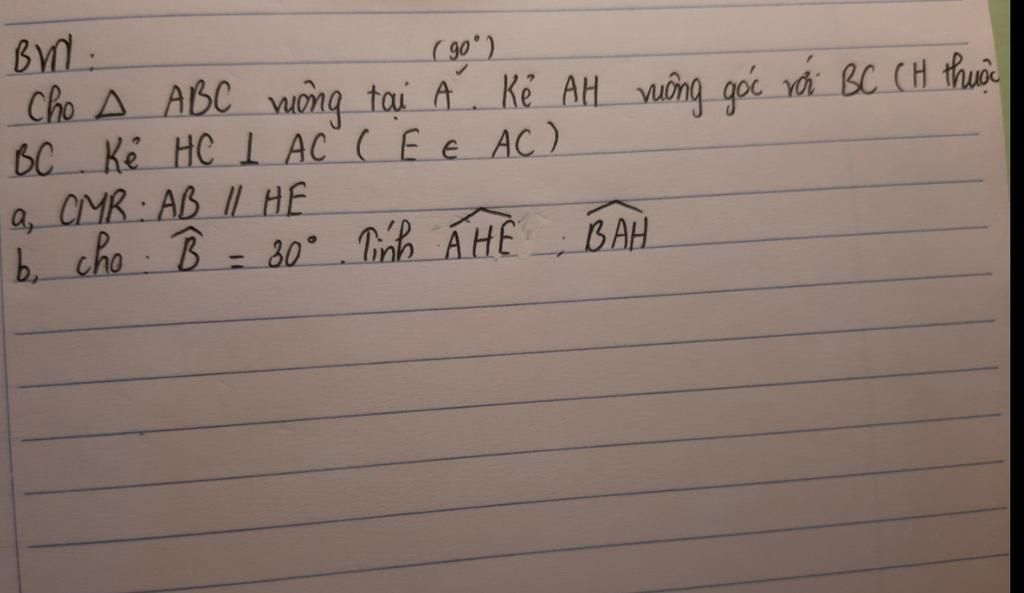 BVN:
(90°)
Cho △ ABC vuông tại A. Kẻ AH vuông góc với BC (H thuộc
BC. Kẻ HC ⊥ AC ( E ∈ AC)
a, CMR: AB // HE
b, cho: B̂ = 30°. Tính \widehat{AHE}; \widehat{BAH}